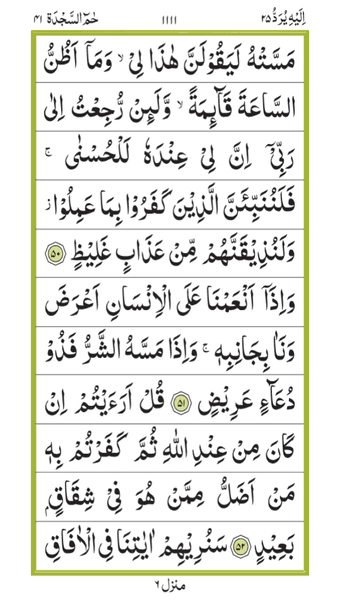 اِلَیْهِ یُرَدُّ ۲۵ ۱۱۱۱ حٰمٓ السَّجْدَة ۴۱
مَسَّتْهُ لَیَقُوْلَنَّ هٰذَا لِیْ ۙ وَمَاۤ اَظُنُّ
السَّاعَةَ قَآئِمَةً ۙ وَّلَئِنْ رُّجِعْتُ اِلٰی
رَبِّیْۤ اِنَّ لِیْ عِنْدَهٗ لَلْحُسْنٰی ۚ
فَلَنُنَبِّئَنَّ الَّذِیْنَ كَفَرُوْا بِمَا عَمِلُوْا ؗ
وَلَنُذِیْقَنَّهُمْ مِّنْ عَذَابٍ غَلِیْظٍ ﴿۵۰﴾
وَاِذَاۤ اَنْعَمْنَا عَلَی الْاِنْسَانِ اَعْرَضَ
وَنَاٰ بِجَانِبِهٖ ۚ وَاِذَا مَسَّهُ الشَّرُّ فَذُوْ
دُعَآءٍ عَرِیْضٍ ﴿۵۱﴾ قُلْ اَرَءَیْتُمْ اِنْ
كَانَ مِنْ عِنْدِ اللّٰهِ ثُمَّ كَفَرْتُمْ بِهٖ
مَنْ اَضَلُّ مِمَّنْ هُوَ فِیْ شِقَاقٍۭ
بَعِیْدٍ ﴿۵۲﴾ سَنُرِیْهِمْ اٰیٰتِنَا فِی الْاٰفَاقِ
منزل ۶